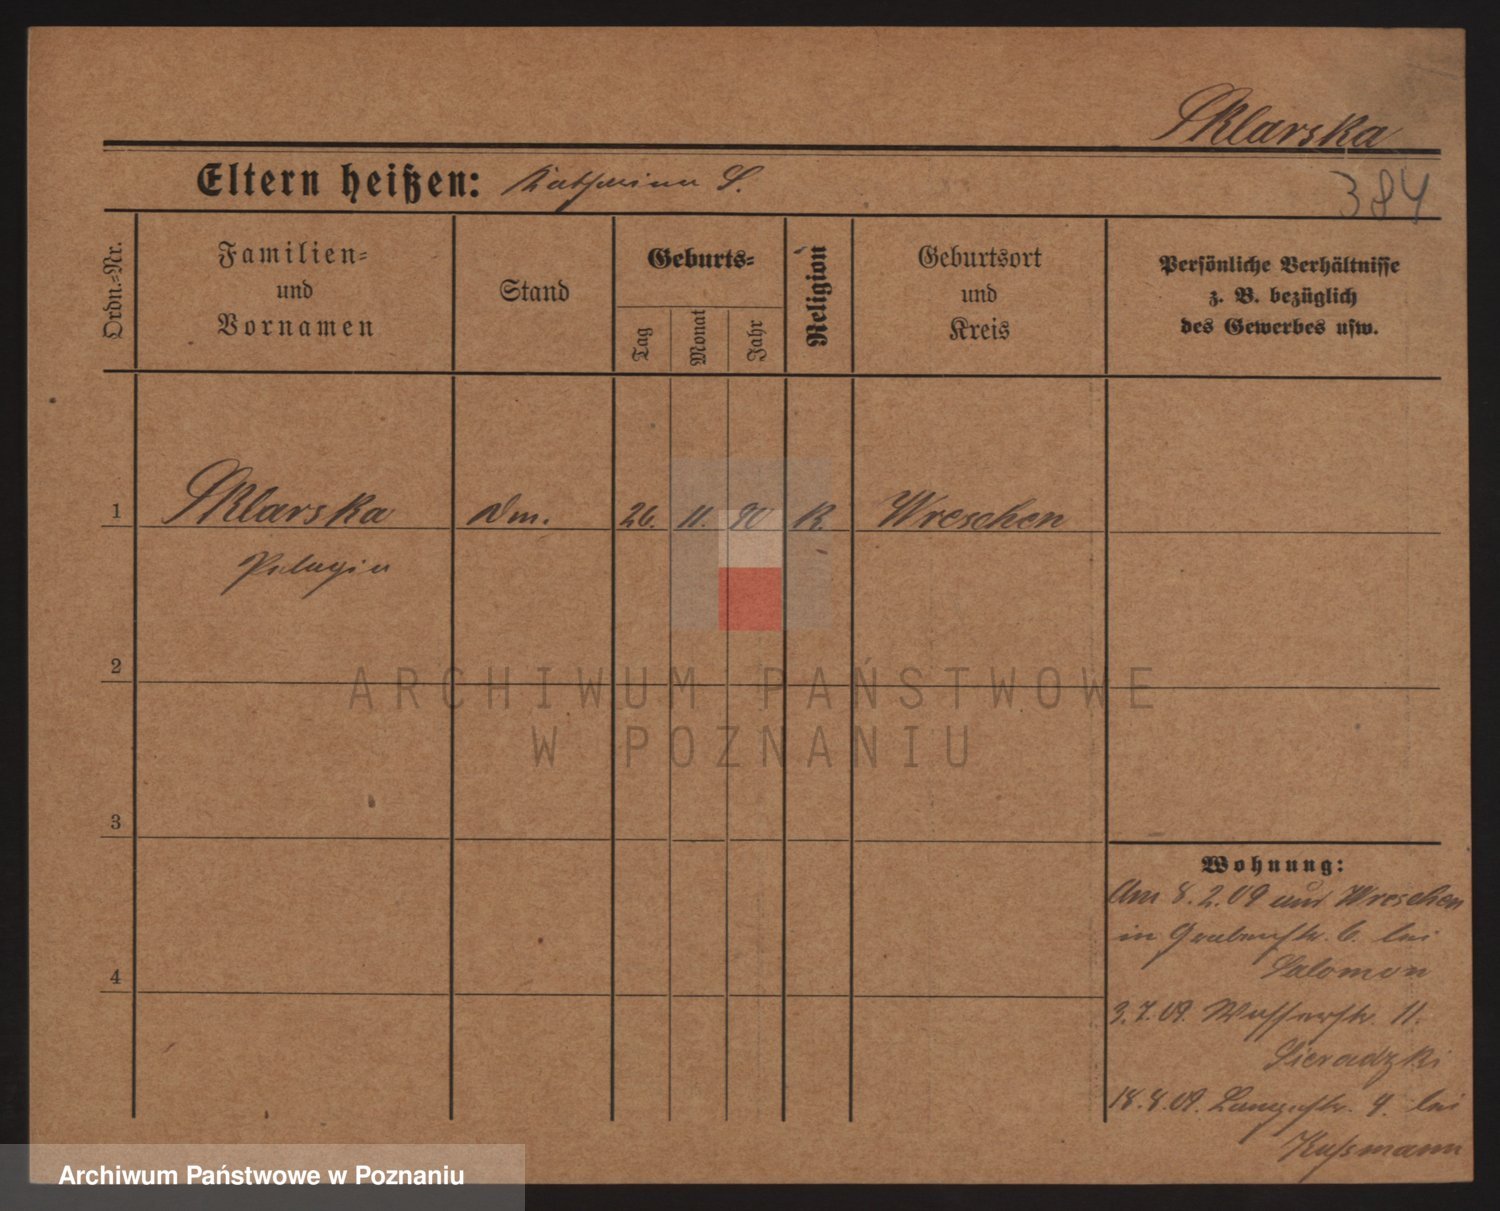 Sklarska
Eltern heißen: Katharina S.
384
Ordn.-Nr.
Familien-
und
Vornamen
Stand
Geburts-
Tag
Monat
Jahr
Religion
Geburtsort
und
Kreis
Persönliche Verhältnisse
z. B. bezüglich
des Gewerbes usw.
1 Sklarska Dm. 26. 11. 90 K. Wreschen
Pelagia
2
ARCHIWUM PAŃSTWOWE
W POZNANIU
3
Wohnung:
Am 8.2.09 aus Wreschen
in Grabenstr. 6. bei
Salomon
4
3.7.09. Wasserstr. 11.
Sieradzki
18.8.09. Langestr. 4. bei
Kußmann
Archiwum Państwowe w Poznaniu